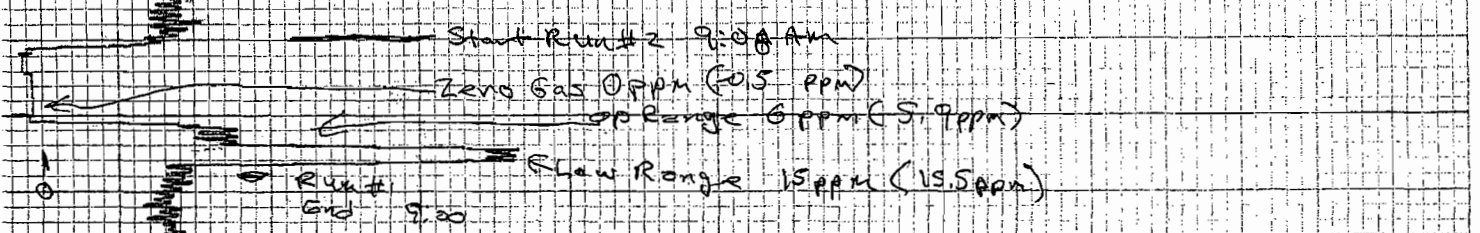 Start Run #2 9:08 AM
Zero Gas 0 ppm (-0.5 ppm)
op Range 6 ppm (5.9ppm)
Low Range 15 ppm (15.5ppm)
Run #1
End 9:00
0